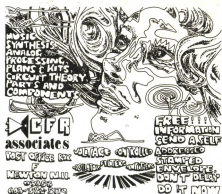 MUSIC
SYNTHESIS
ANALOG
PROCESSING
PLANS & KITS
CIRCUIT THEORY
PARTS AND
COMPONENTS
CFR
associates
POST OFFICE BOX
F
NEWTON N.H.
VOLTAGE CONTROLLED
FREE!!!
INFORMATION
SEND A SELF
ADDRESSED
STAMPED
ENVELOPE
DON'T DELAY
DO IT NOW